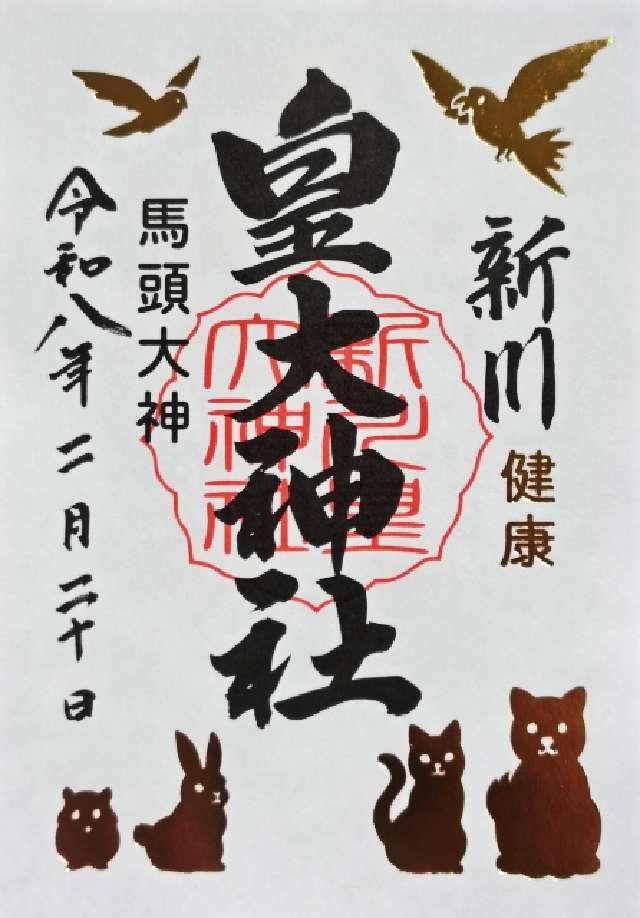 新川
健康
皇大神社
新川皇
大神社
馬頭大神
令和八年二月二十日